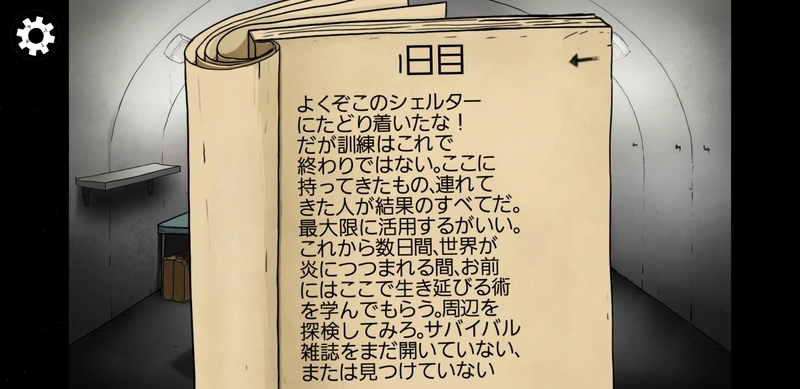 1日目
よくぞこのシェルター
にたどり着いたな！
だが訓練はこれで
終わりではない。ここに
持ってきたもの、連れて
きた人が結果のすべてだ。
最大限に活用するがいい。
これから数日間、世界が
炎につつまれる間、お前
にはここで生き延びる術
を学んでもらう。周辺を
探検してみろ。サバイバル
雑誌をまだ開いていない、
または見つけていない